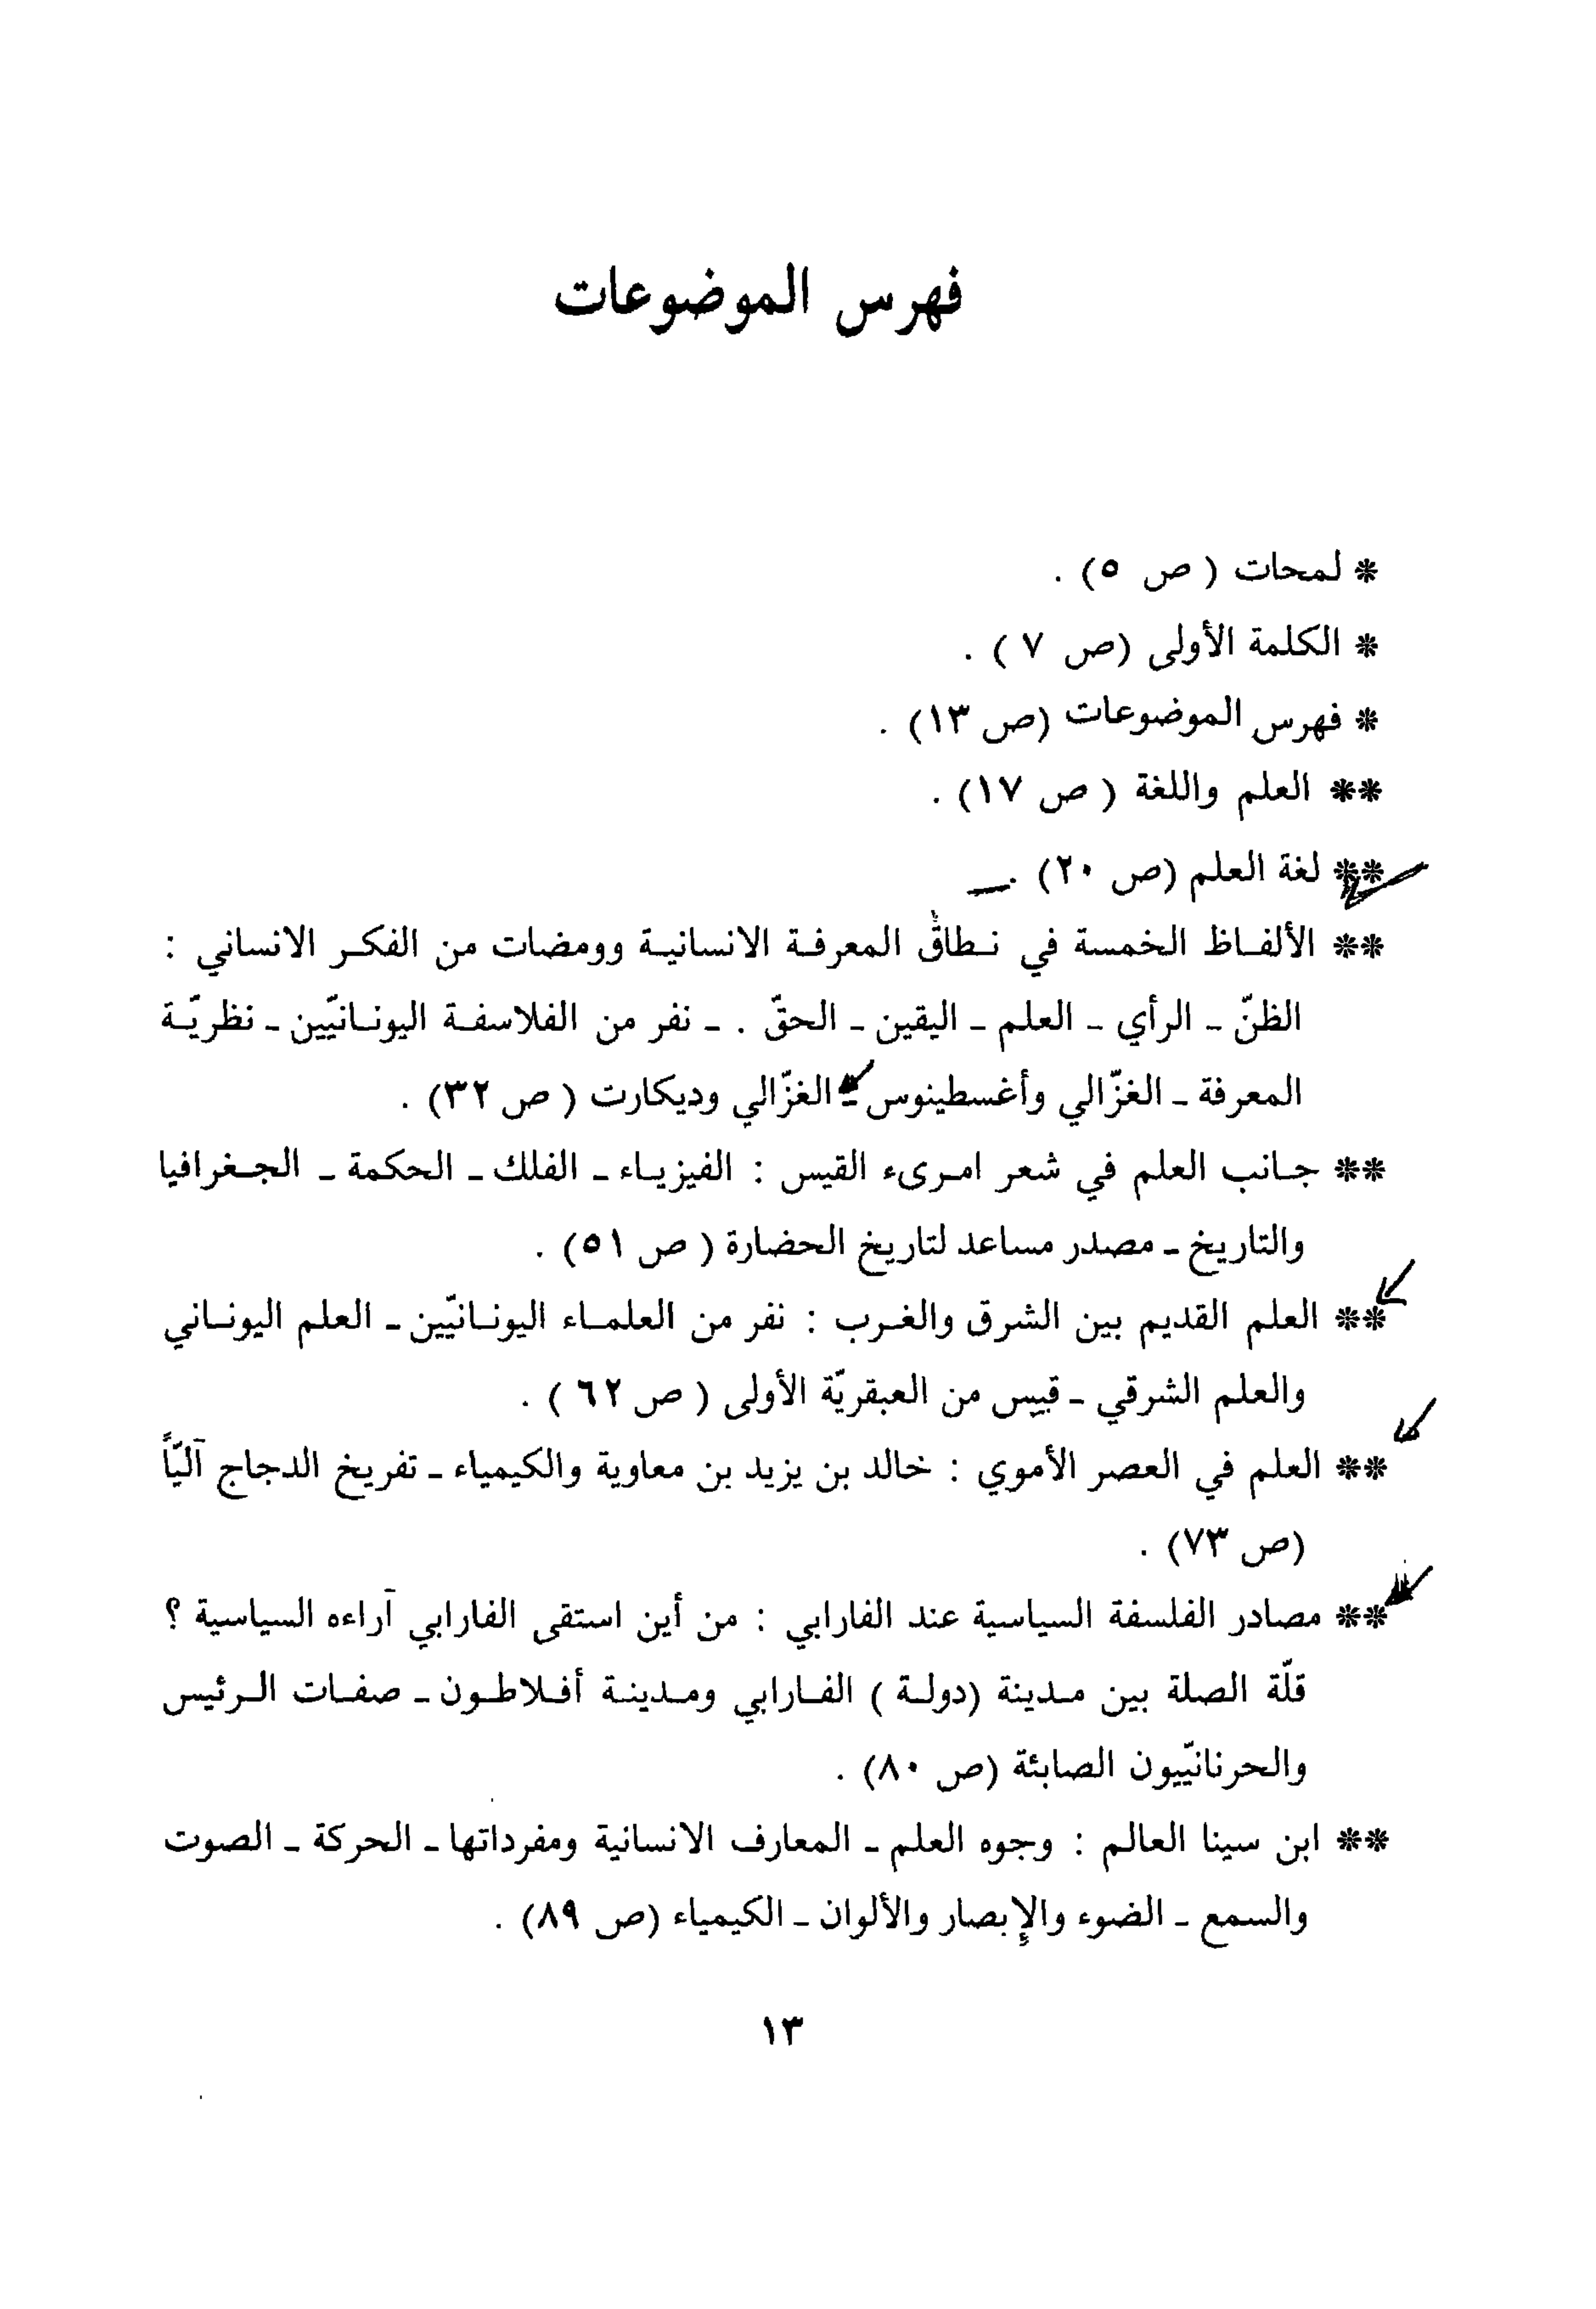 فهرس الموضوعات
* لمحات ( ص ٥) .
* الكلمة الأولى (ص ٧ ) .
* فهرس الموضوعات (ص ١٣) .
** العلم واللغة ( ص ١٧) .
** لغة العلم (ص ٢٠) .
** الألفاظ الخمسة في نطاق المعرفة الانسانية وومضات من الفكر الانساني :
الظنّ - الرأي - العلم - اليقين - الحقّ . - نفر من الفلاسفة اليونانيّين - نظريّة
المعرفة - الغزّالي وأغسطينوس - الغزّالي وديكارت ( ص ٣٢) .
** جانب العلم في شعر امرىء القيس : الفيزياء - الفلك - الحكمة - الجغرافيا
والتاريخ - مصدر مساعد لتاريخ الحضارة ( ص ٥١) .
** العلم القديم بين الشرق والغرب : نفر من العلماء اليونانيّين - العلم اليوناني
والعلم الشرقي - قبس من العبقريّة الأولى ( ص ٦٢ ) .
** العلم في العصر الأموي : خالد بن يزيد بن معاوية والكيمياء - تفريخ الدجاج آليّاً
(ص ٧٣) .
** مصادر الفلسفة السياسية عند الفارابي : من أين استقى الفارابي آراءه السياسية ؟
قلّة الصلة بين مدينة (دولة ) الفارابي ومدينة أفلاطون - صفات الرئيس
والحرنانيّيون الصابئة (ص ٨٠) .
** ابن سينا العالم : وجوه العلم - المعارف الانسانية ومفرداتها - الحركة - الصوت
والسمع - الضوء والإبصار والألوان - الكيمياء (ص ٨٩) .
١٣